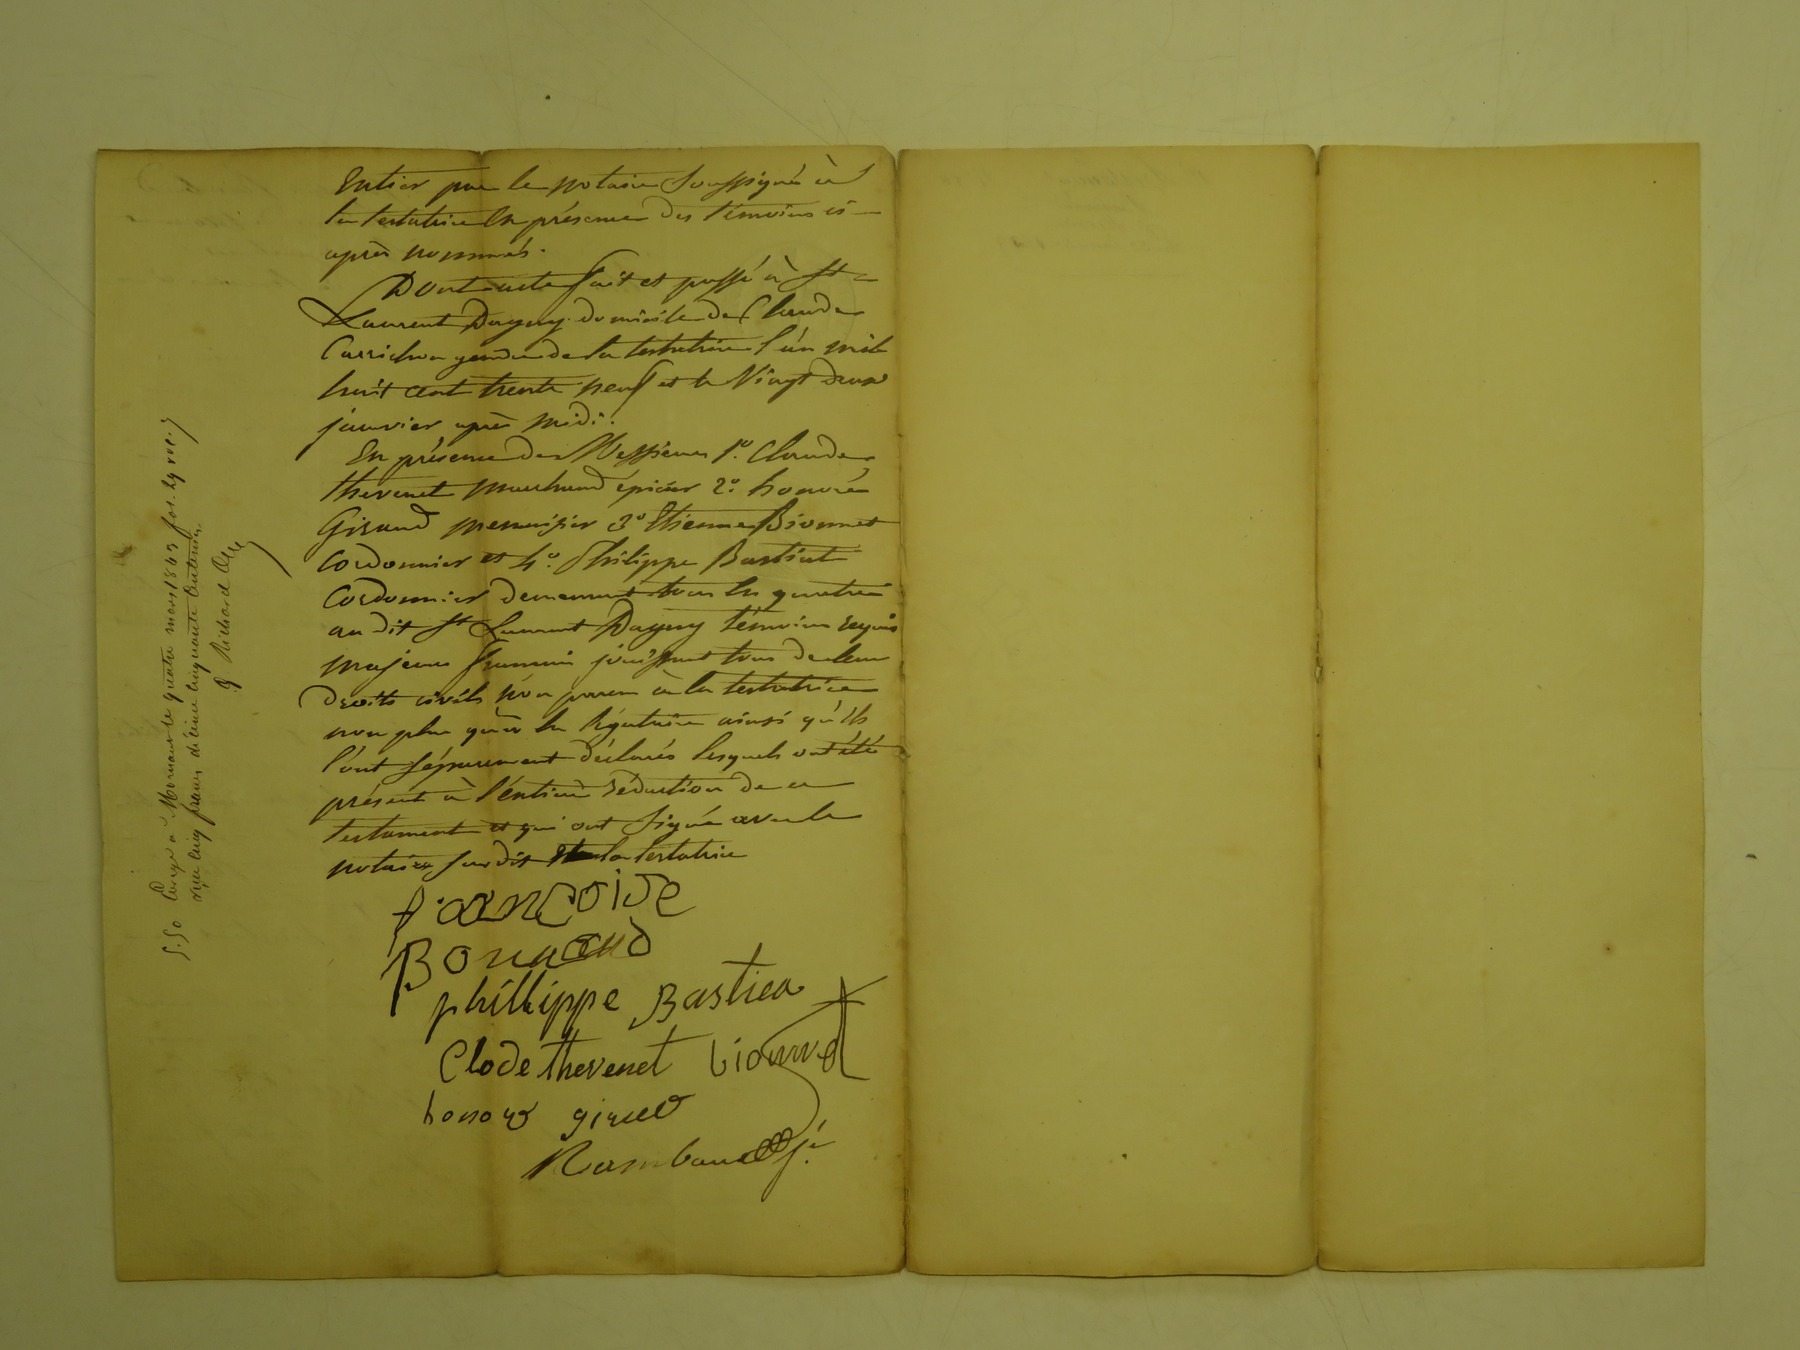 Entier par le notaire soussigné à
la testatrice en présence des témoins ci
après nommés.
Dont acte fait et passé à St
Laurent Dagny domicile de Claude
gendre de la testatrice l'an mil
huit cent trente neuf et le Vingt deux
janvier après midi.
En présence de Messieurs 1º. Claude
thevenet marchand épicier 2º. honoré
Giraud menuisier 3º Etienne Bionnet
Cordonnier et 4º. Philippe Bastiat
Cordonnier demeurant tous les quatre
au dit St Laurent Dagny témoins requis
majeurs français jouissant tous de leurs
droits civils non parens à la testatrice
non plus qu'à la légataire ainsi qu'ils
l'ont séparément déclarés lesquels ont été
présent à l'entière rédaction de ce
testament et qui ont signé avec le
notaire susdit et la testatrice
françoise
Bonnand
phillippe Bastiea
Clode thevenet bionnet
honoré giraud
Rambaud
5.50 Enregé à Mornant le quatre mars 1843 fol. 29 vo c. 7
reçu cinq francs décime cinquante centimes
Richard